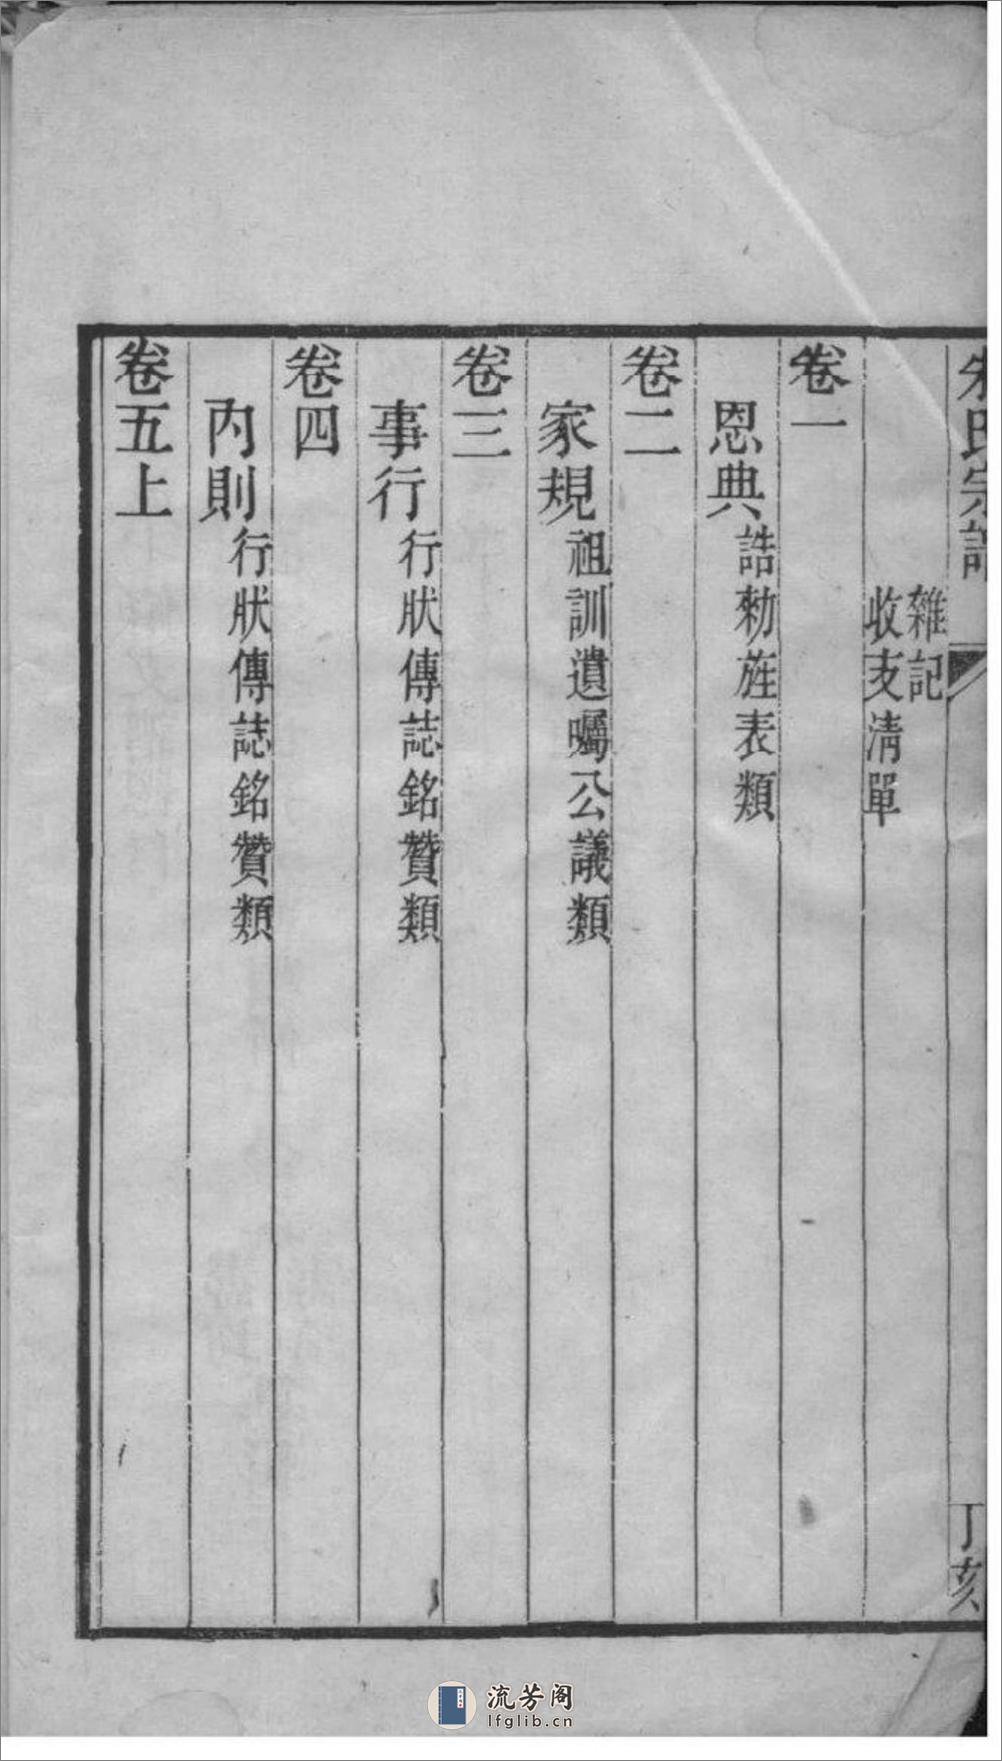 朱氏宗譜
丁亥
雜記
收支清單
卷一
恩典 誥勅旌表類
卷二
家規 祖訓遺囑公議類
卷三
事行 行狀傳誌銘贊類
卷四
內則 行狀傳誌銘贊類
卷五上
流芳阁
lfglib.cn